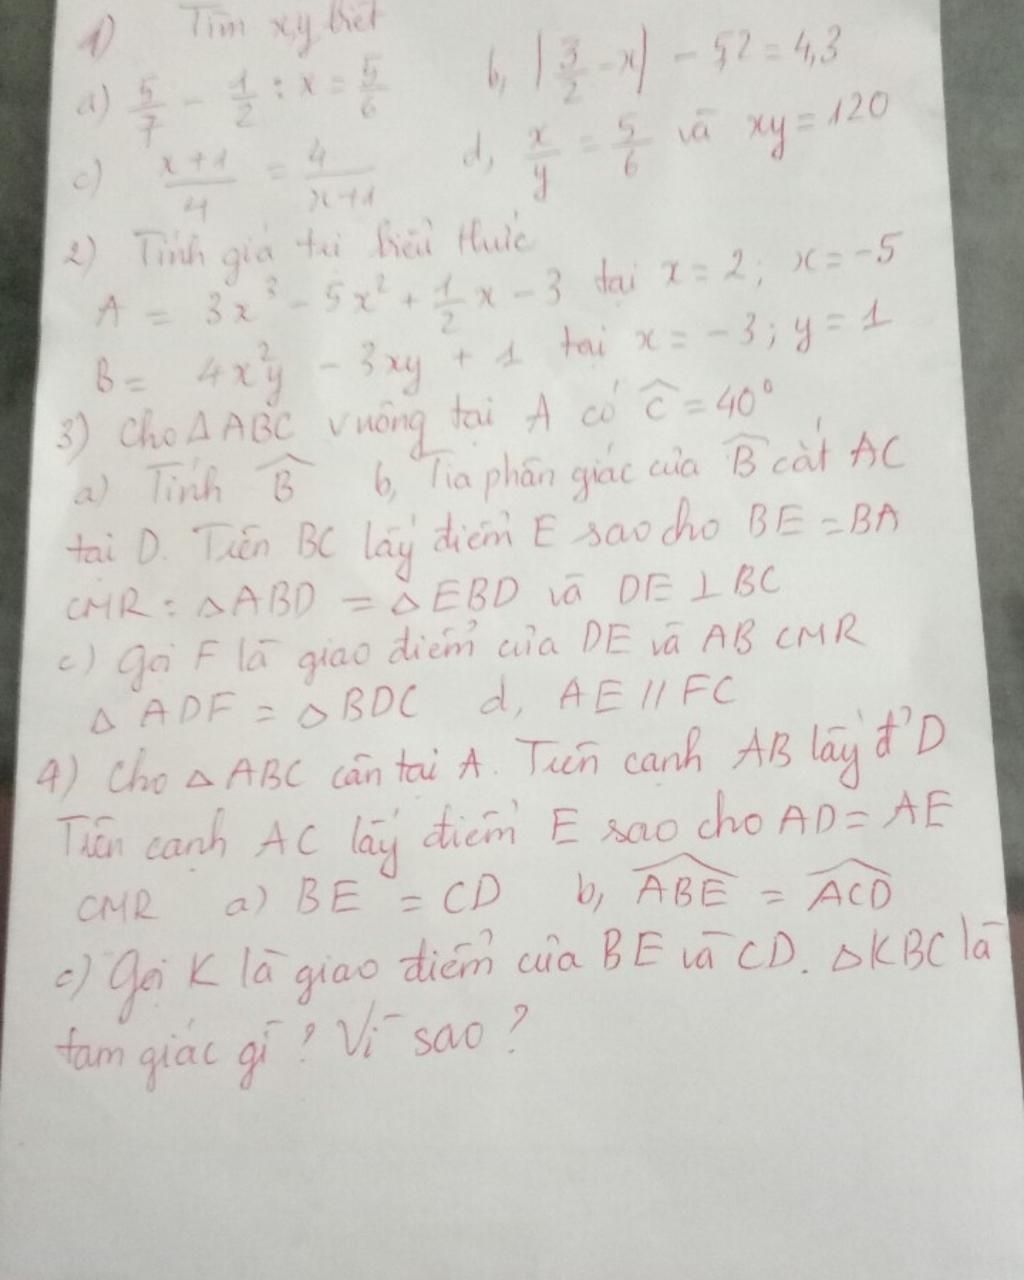 1) Tìm x,y biết
a) 5/7 - 1/2 : x = 5/6 b, |3/2 - x| - 5,2 = 4,3
c) (x+1)/4 = 4/(x+1) d, x/y = 5/6 và xy = 120
2) Tính giá trị biểu thức
A = 3x³ - 5x² + 1/2 x - 3 tại x = 2; x = -5
B = 4x²y - 3xy + 1 tại x = -3; y = 1
3) Cho Δ ABC vuông tại A có Ĉ = 40°
a) Tính B̂ b, Tia phân giác của B̂ cắt AC
tại D. Trên BC lấy điểm E sao cho BE = BA
CMR: Δ ABD = Δ EBD và DE ⊥ BC
c) Gọi F là giao điểm của DE và AB CMR
Δ ADF = Δ BDC d, AE // FC
4) Cho Δ ABC cân tại A. Trên cạnh AB lấy đ' D
Trên cạnh AC lấy điểm E sao cho AD = AE
CMR a) BE = CD b, \widehat{ABE} = \widehat{ACD}
c) Gọi K là giao điểm của BE và CD. Δ KBC là
tam giác gì? Vì sao?